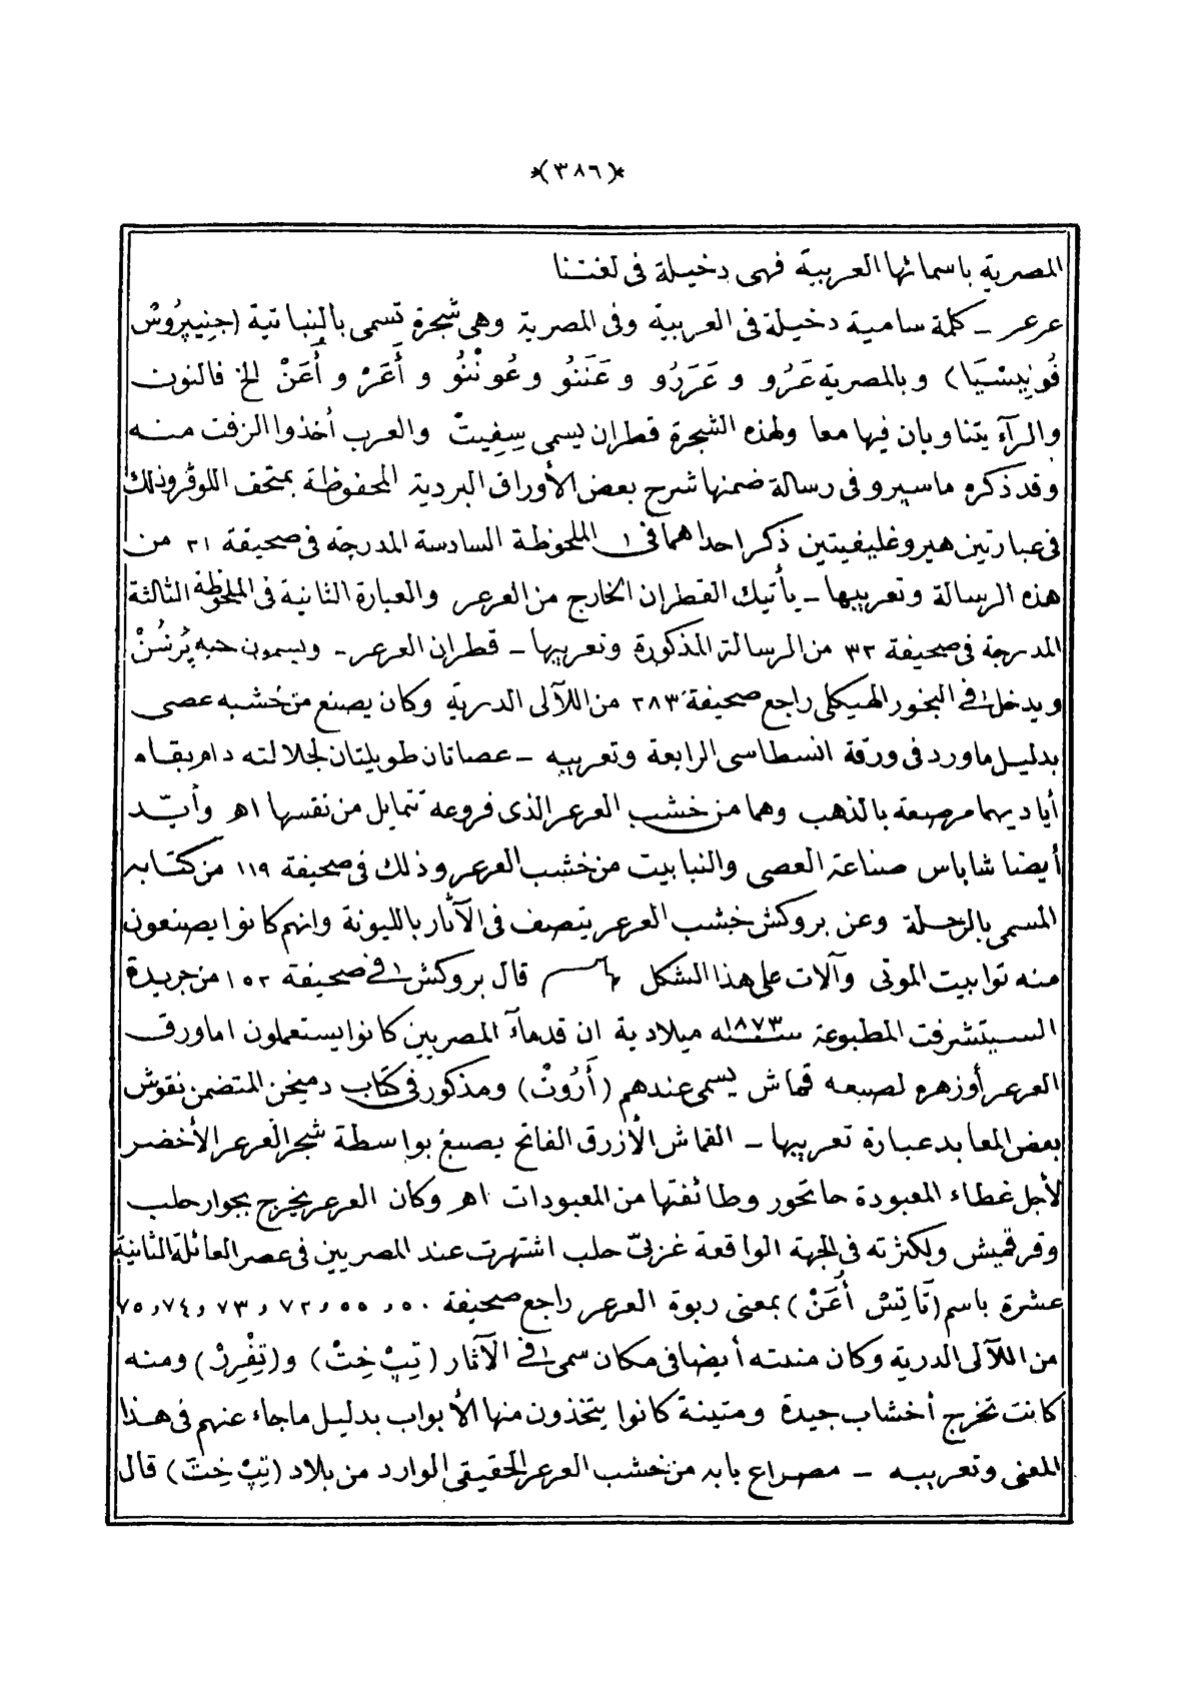 *(٣٨٦)*
المصرية باسمائها العربية فهى دخيلة فى لغتنا
عرعر ـ كلمة سامية دخيلة فى العربية وفى المصرية وهى شجرة تسمى بالنباتية (جِنِيپرُوسْ
فُونِيسْيَا) وبالمصرية عَرُو و عَرَرُو و عَنَنُو و عُونْنُو و أَعَرْ و أَعَنْ الخ فالنون
والرآء يتناوبان فيها معا ولهذه الشجرة قطران يسمى سِفِيتْ والعرب أخذوا الزفت منه
وقد ذكره ماسپرو فى رسالة ضمنها شرح بعض الأوراق البردية المحفوظة بمتحف اللوڤر وذلك
فى عبارتين هيروغليفيتين ذكر احداهما فى الملحوظة السادسة المدرجة فى صحيفة ٣١ من
هذه الرسالة وتعريبها ـ يأتيك القطران الخارج من العرعر والعبارة الثانية فى الملحوظة الثالثة
المدرجة فى صحيفة ٣٢ من الرسالة المذكورة وتعريبها ـ قطران العرعر ـ ويسمون حبه پُرشُنْ
ويدخل فى البخور الهيكلى راجع صحيفة ٢٨٣ من اللآلى الدرية وكان يصنع من خشبه عصى
بدليل ماورد فى ورقة انسطاسى الرابعة وتعريبه ـ عصاتان طويلتان لجلالته دام بقاه
أياديهما مرصعة بالذهب وهما من خشب العرعر الذى فروعه تتمايل من نفسها اهـ وأيّد
أيضا شاباس صناعة العصى والنبابيت من خشب العرعر وذلك فى صحيفة ١١٩ من كتابه
المسمى بالرحلة وعن بروكش خشب العرعر يتصف فى الآثار بالليونة وانهم كانوا يصنعون
منه توابيت الموتى وآلات على هذا الشكل قال بروكش فى صحيفة ١٥٢ من جريدة
السيتشرفت المطبوعة سنة ١٨٧٣ ميلادية ان قدمآء المصريين كانوا يستعملون اما ورق
العرعر أو زهره لصبغه قماش يسمى عندهم (أَرُوتْ) ومذكور فى كتاب دميخن المتضمن نقوش
بعض المعابد عبارة تعريبها ـ القماش الأزرق الفاتح يصبغ بواسطة شجر العرعر الأخضر
لأجل غطاء المعبودة حاتحور وطائفتها من المعبودات اهـ وكان العرعر يخرج بجوار حلب
وقرقميش ولكثرته فى الجهة الواقعة غربىّ حلب اشتهرت عند المصريين فى عصر العائلة الثانية
عشرة باسم (تَاتِسْ أُعَنْ) بمعنى ربوة العرعر راجع صحيفة ٥٠ و ٥٥ و ٧٢ و ٧٣ و ٧٤ و ٧٥
من اللآلى الدرية وكان منبته أيضا فى مكان سمى فى الآثار (تِپْ خِتْ) و(تِفْرِرْ) ومنه
كانت تخرج أخشاب جيدة ومتينة كانوا يتخذون منها الأبواب بدليل ماجاء عنهم فى هذا
المعنى وتعريبه ـ مصراع بابه من خشب العرعر الحقيقى الوارد من بلاد (تِپْ خِتَ) قال